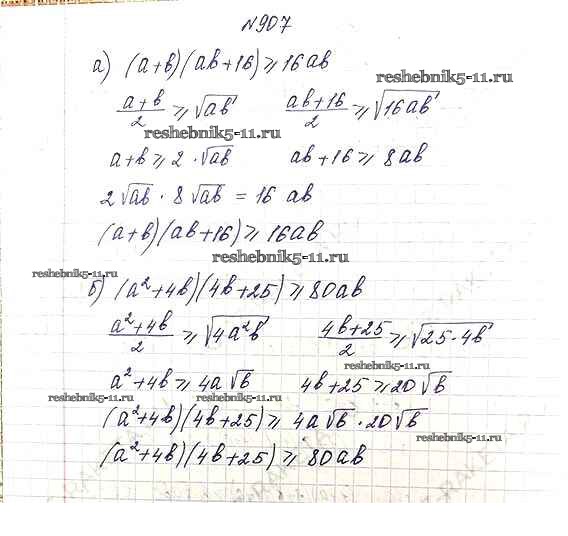 №907
а) (a+b)(ab+16) ≥ 16ab
reshebnik5-11.ru
(a+b)/2 ≥ √ab    (ab+16)/2 ≥ √16ab
reshebnik5-11.ru
a+b ≥ 2·√ab    ab+16 ≥ 8ab
2√ab · 8√ab = 16 ab
(a+b)(ab+16) ≥ 16ab
reshebnik5-11.ru
reshebnik5-11.ru
б) (a²+4b)(4b+25) ≥ 80ab
(a²+4b)/2 ≥ √4a²b    (4b+25)/2 ≥ √25·4b
reshebnik5-11.ru
a²+4b ≥ 4a√b    4b+25 ≥ 20√b
reshebnik5-11.ru reshebnik5-11.ru
(a²+4b)(4b+25) ≥ 4a√b · 20√b
reshebnik5-11.ru
(a²+4b)(4b+25) ≥ 80ab